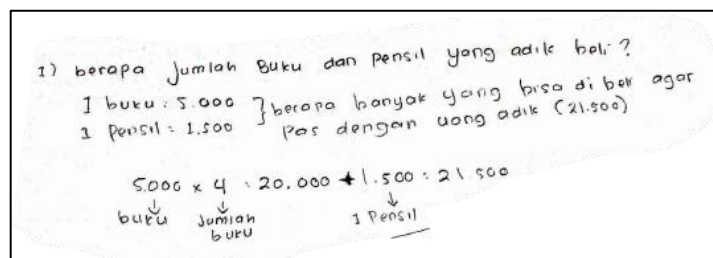 1) berapa jumlah Buku dan pensil yang adik beli?
1 buku : 5.000 } berapa banyak yang bisa di beli agar
1 Pensil : 1.500 } Pas dengan uang adik (21.500)
5.000 x 4 : 20.000 + 1.500 : 21.500
↓ ↓ ↓
buku Jumlah 1 Pensil
buku